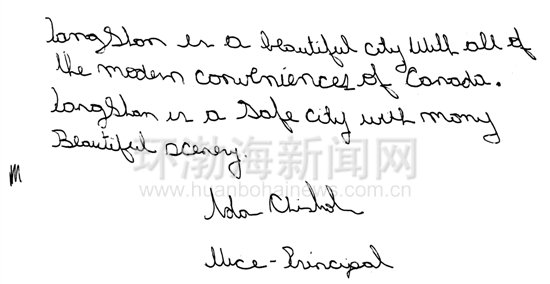 TangShan is a beautiful city with all of
the modern conveniences of Canada.
TangShan is a safe city with many
Beautiful scenery.
环渤海新闻网
www.huanbohainews.com.cn
Ada
Vice-Principal